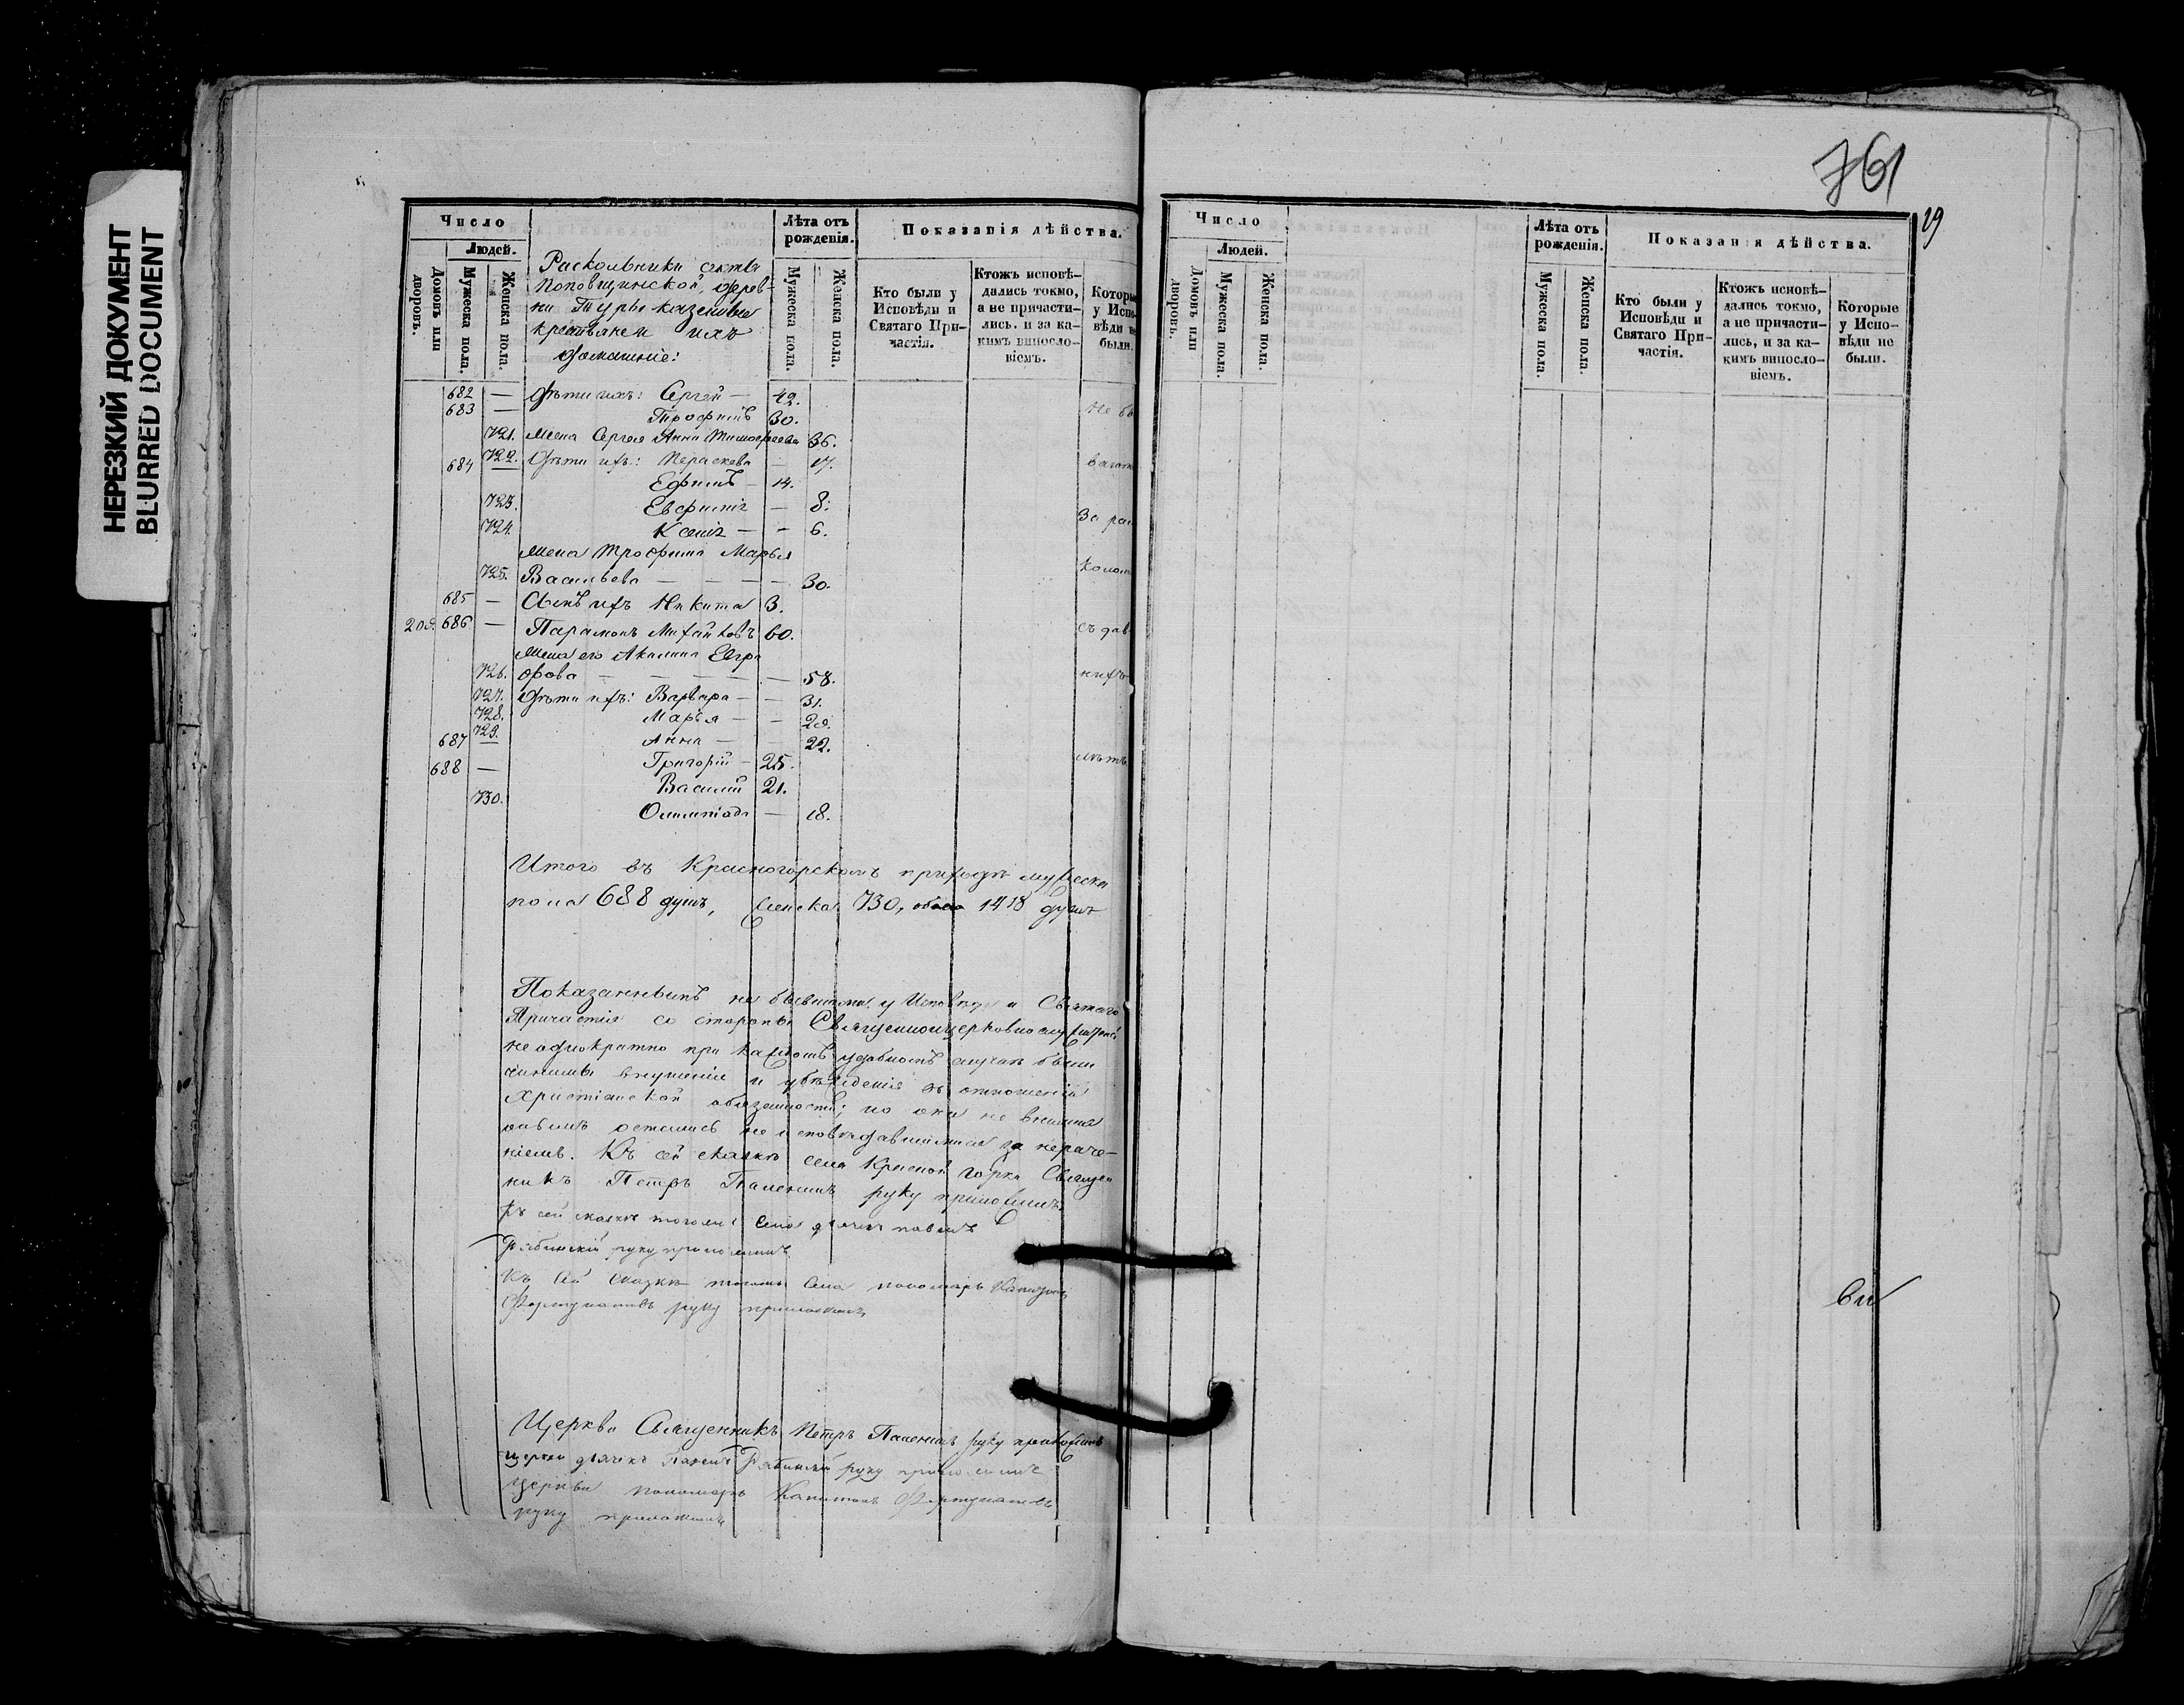 НЕРЕЗКИЙ ДОКУМЕНТ
BLURRED DOCUMENT
Число
Людей.
Домовъ или дворовъ.
Мужеска пола.
Женска пола.
Раскольники секты
Поповщинской, дерев-
ни Туры казенные
крестьяне и ихъ
домашніе:
Лѣта отъ рожденія.
Мужеска пола.
Женска пола.
Показанія дѣйства.
Кто были у Исповѣди и Святаго При-частія.
Ктожъ исповѣ-дались токмо, а не причасти-лись. и за ка-кимъ винословіемъ.
Которы у Испо-вѣди не были.
682 — Дѣти ихъ: Сергей — 42.
683 — Трофимъ 30.
721. Жена Сергея Анна Тимофеева 36.
722. Дѣти ихъ: Параскева — 17.
684 — Ефимъ — 14.
723. Евфимія — 8.
724. Ксенія — — 6.
Жена Трофима Марья
725. Васильева — — — — 30.
685 — Сынъ ихъ Никита 3.
208. 686 — Парамонъ Михайловъ 60.
Жена его Акилина Евгра
726. фова — — — — — 58.
727. Дѣти ихъ: Варвара — — 31.
728. Марья — — 28.
729. Анна — 22.
687 — Григорій — 25.
688 — Василій 21.
730. Олимпіада — 18.
за рас
съ дав
нихъ
лѣтъ
Итого въ Красногорскомъ приходѣ мужеска
пола 688 душъ, женска 730, обоего 1418 душъ
Показаннымъ не бывшими у Исповѣди и Святаго
Причастія со стороны Священноцерковнослужителей
неоднократно при каждомъ удобномъ случаѣ были
чинимы внушенія и убѣжденія въ отношеніи
Христіанской обязанности; но они не внимая
онымъ остались не исповѣдавшимися за нераче-
ніемъ. Къ сей сказкѣ села Красной Горки Священ
никъ Петръ руку приложилъ
Къ сей сказкѣ тогожъ села дьячекъ Павелъ
Рябинскій руку приложилъ
Къ сей сказкѣ тогожъ села пономарь Капитонъ
Фортунатовъ руку приложилъ
Церкви Священникъ Петръ руку приложилъ
церкви дьячекъ Павелъ Рябинскій руку приложилъ
Церкви пономарь Капитонъ Фортунатовъ
руку приложилъ
761
19
Число
Людей.
Домовъ или дворовъ.
Мужеска пола.
Женска пола.
Лѣта отъ рожденія.
Мужеска пола.
Женска пола.
Показанія дѣйства.
Кто были у Исповѣди и Святаго При-частія.
Ктожъ исповѣ-дались токмо, а не причасти-лись, и за ка-кимъ винословіемъ.
Которые у Испо-вѣди не были.